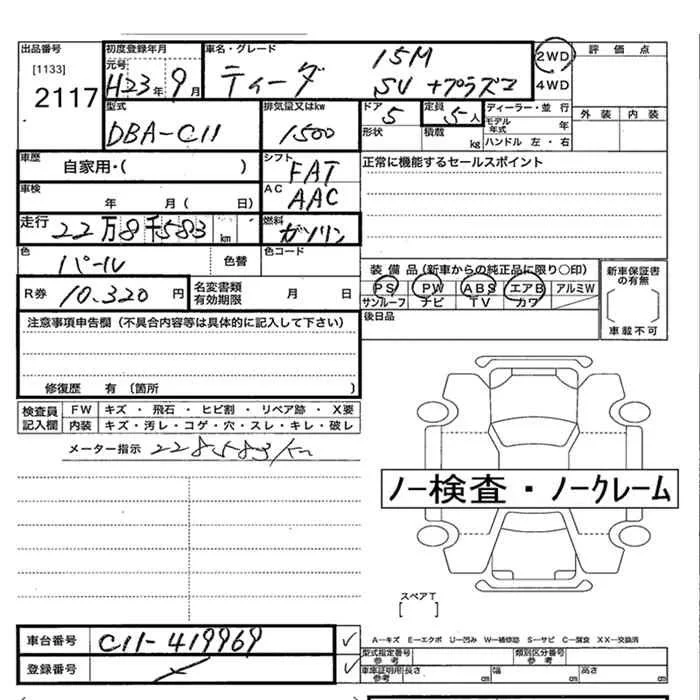 出品番号 初度登録年月 車名・グレード 15M 2WD 評価点
[1133] 元号 H23年 9月 ティーダ SV+プラズマ 4WD
2117 型式 排気量又はkw ドア 5 定員 5人 ディーラー・並行 外装 内装
DBA-C11 1500 形状 積載 kg モデル年式 年
ハンドル 左・右
車歴 自家用・( ) シフト FAT 正常に機能するセールスポイント
車検 年 月( 日) AC AAC
走行 22万8千583km 燃料 ガソリン
色 パール 色替 色コード 装備品(新車からの純正品に限り○印) 新車保証書の有無
R券 10.320円 名変書類有効期限 月 日 PS PW ABS エアB アルミW
サンルーフ ナビ TV カワ 〔 〕
注意事項申告欄(不具合内容等は具体的に記入して下さい) 後日品 車載不可
修復歴 有 〔箇所 〕
検査員記入欄 FW キズ・飛石・ヒビ割・リペア跡・X要
内装 キズ・汚レ・コゲ・穴・スレ・キレ・破レ
メーター指示 228583km
ノー検査・ノークレーム
スペアT
[ ]
車台番号 C11-419969 ✓ A―キズ E―エクボ U―凹み W―補修跡 S―サビ C―腐食 XX―交換済
型式指定番号 参考 類別区分番号 参考
登録番号 ✓ 車庫証明用参考 長さ cm 幅 cm 高さ cm